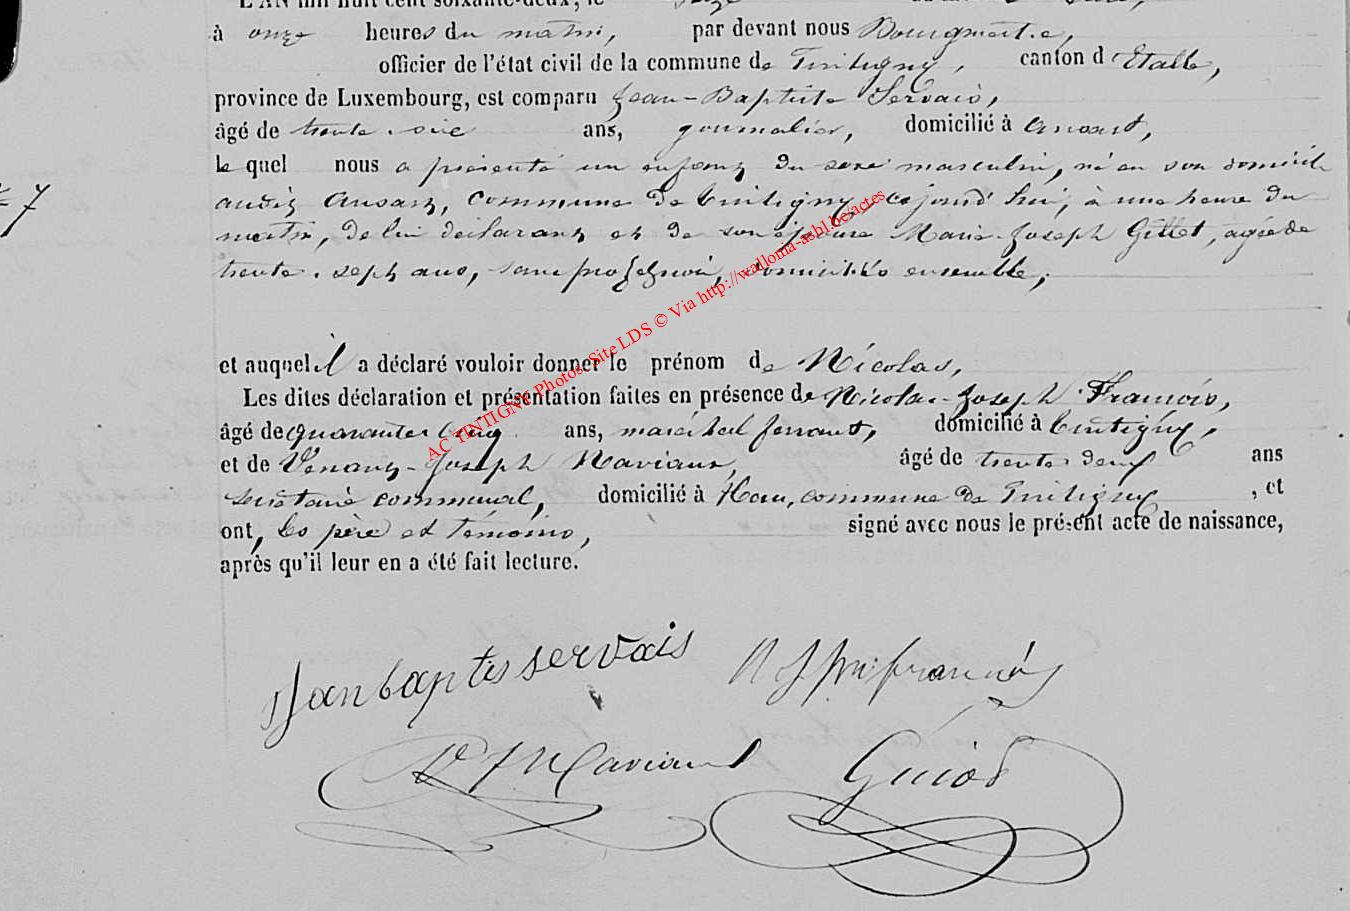 L'AN mil huit cent soixante-deux, le seize
à onze heures du matin, par devant nous Bourgmestre,
officier de l'état civil de la commune de Tintigny, canton d'Etalle,
province de Luxembourg, est comparu Jean-Baptiste Servais,
âgé de trente-six ans, journalier, domicilié à Ansart,
le quel nous a présenté un enfant du sexe masculin, né en son domicile
audit Ansart, commune de Tintigny, cejourd'hui, à une heure du
matin, de lui déclarant et de son épouse Marie-Joseph Gillet, agée de
trente-sept ans, sans profession, domiciliés ensemble,
= 7
et auquel il a déclaré vouloir donner le prénom de Nicolas,
Les dites déclaration et présentation faites en présence de Nicolas-Joseph François,
âgé de quarante cinq ans, maréchal ferrant, domicilié à Tintigny,
et de Venant-Joseph Maviaux, âgé de trente deux ans
secrétaire communal, domicilié à Han, commune de Tintigny, et
ont, les père et témoins, signé avec nous le présent acte de naissance,
après qu'il leur en a été fait lecture.
Jan baptis servais
françois
Guiot
AC TINTIGNY Photos Site LDS © Via http://wallonia-asbl.be/actes